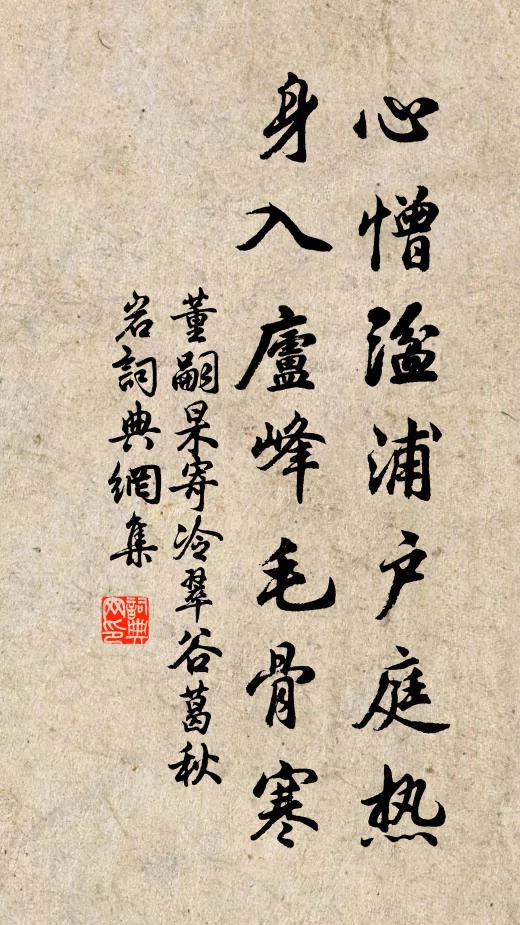 心憎湓浦户庭热
身入廬峰毛骨寒
董嗣杲寄冷翠谷葛秋
岩詞典網集
詞典
网印